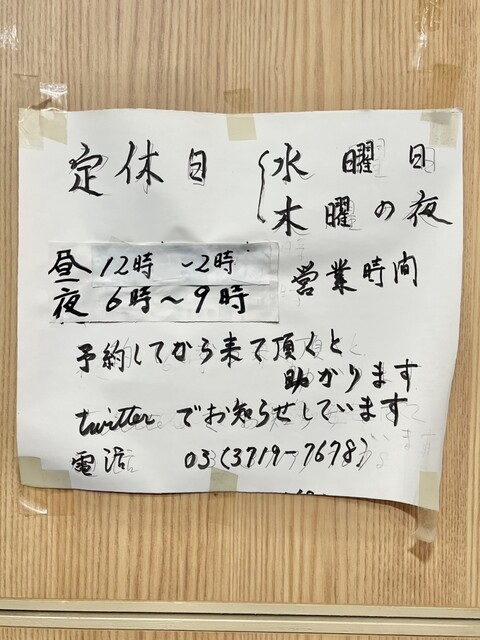 定休日 水曜日
木曜の夜
昼 12時~2時 営業時間
夜 6時~9時
予約してから来て頂くと
助かります
twitterでお知らせしています
電話 03(3719-7678)